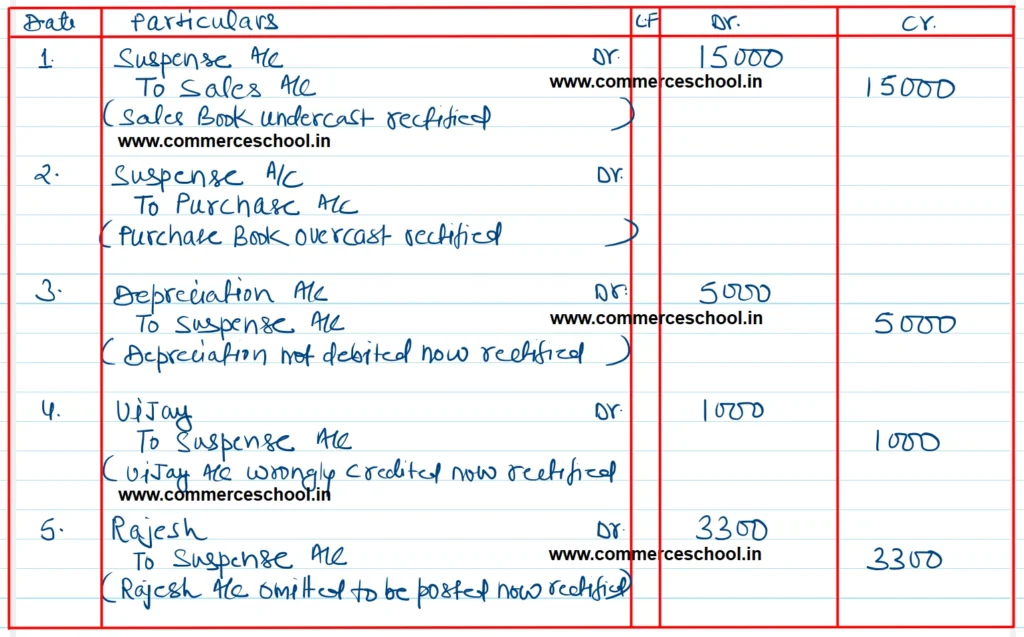 Date Particulars LF Dr. Cr.
1. Suspense A/c Dr. 15000
www.commerceschool.in
To Sales A/c 15000
(Sales Book undercast rectified)
www.commerceschool.in
2. Suspense A/C Dr.
To Purchase A/c
(Purchase Book overcast rectified)
3. Depreciation A/c Dr. 5000
www.commerceschool.in
To Suspense A/c 5000
(Depreciation not debited now rectified)
4. Vijay Dr. 1000
To Suspense A/c 1000
(Vijay A/c wrongly credited now rectified
www.commerceschool.in
5. Rajesh Dr. 3300
To Suspense A/c www.commerceschool.in 3300
(Rajesh A/c omitted to be posted now rectified)